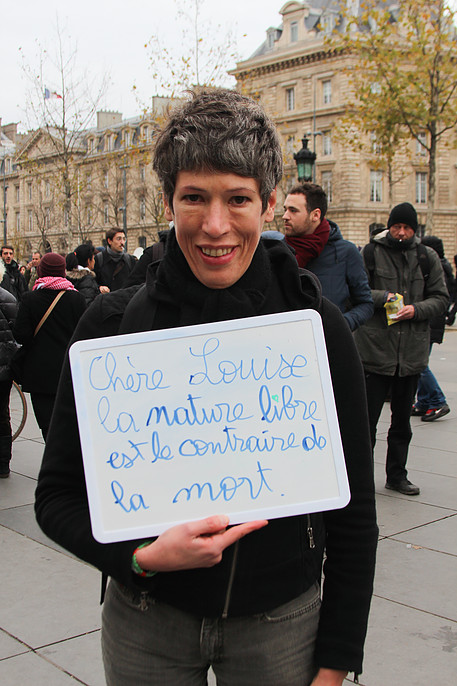 Chère Louise
la nature libre
est le contraire de
la mort.